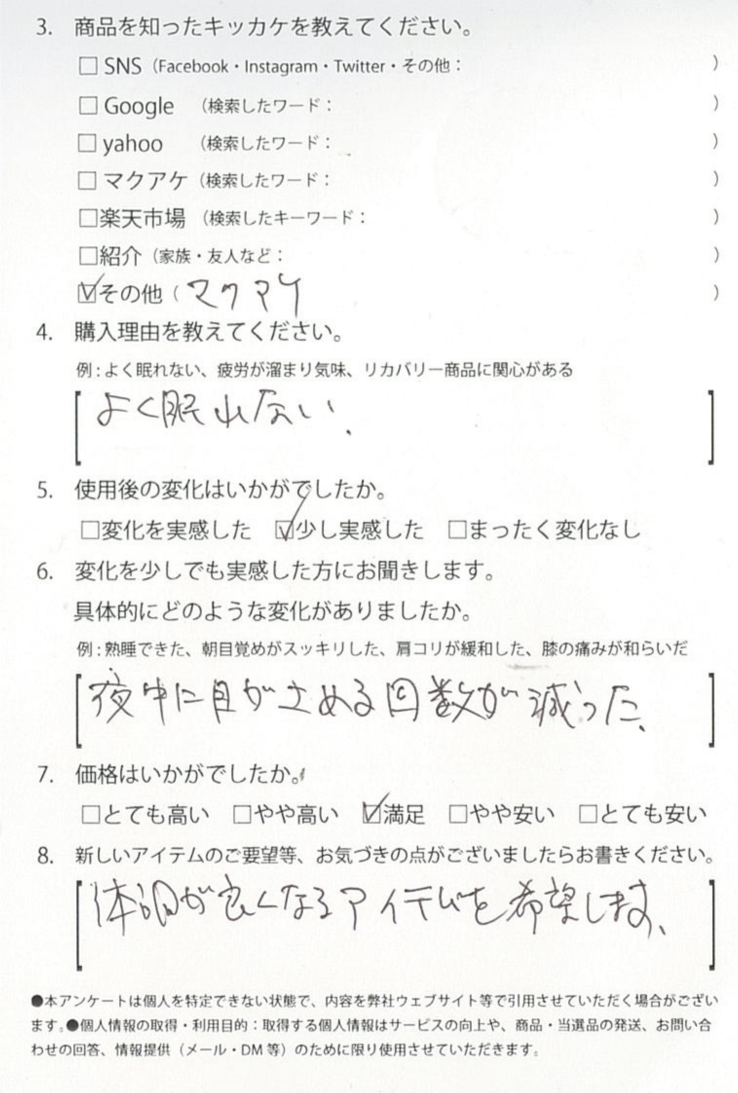 3. 商品を知ったキッカケを教えてください。
□ SNS（Facebook・Instagram・Twitter・その他： ）
□ Google （検索したワード： ）
□ yahoo （検索したワード： ）
□ マクアケ（検索したワード： ）
□楽天市場 （検索したキーワード： ）
□紹介（家族・友人など： ）
☑その他（ マクアケ ）
4. 購入理由を教えてください。
例：よく眠れない、疲労が溜まり気味、リカバリー商品に関心がある
よく眠れない、
5. 使用後の変化はいかがでしたか。
□変化を実感した ☑少し実感した □まったく変化なし
6. 変化を少しでも実感した方にお聞きします。
具体的にどのような変化がありましたか。
例：熟睡できた、朝目覚めがスッキリした、肩コリが緩和した、膝の痛みが和らいだ
夜中に目がさめる回数が減った、
7. 価格はいかがでしたか。
□とても高い □やや高い ☑満足 □やや安い □とても安い
8. 新しいアイテムのご要望等、お気づきの点がございましたらお書きください。
体調が良くなるアイテムを希望します、
●本アンケートは個人を特定できない状態で、内容を弊社ウェブサイト等で引用させていただく場合がござい
ます。●個人情報の取得・利用目的：取得する個人情報はサービスの向上や、商品・当選品の発送、お問い合
わせの回答、情報提供（メール・DM 等）のために限り使用させていただきます。